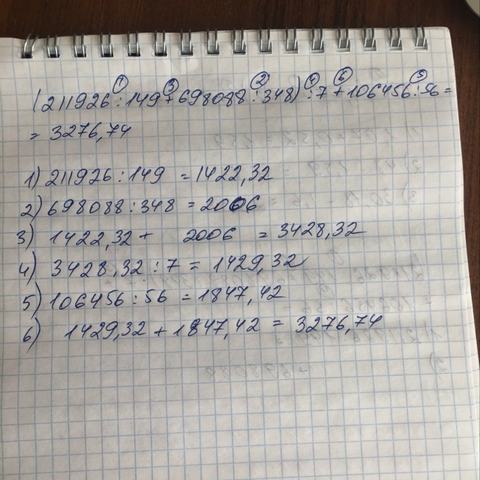 (211926:149+698088:348):7+106456:56=
=3276,74
1) 211926:149 =1422,32
2) 698088:348 =2006
3) 1422,32+ 2006 =3428,32
4) 3428,32:7=1429,32
5) 106456:56=1847,42
6) 1429,32+1847,42=3276,74